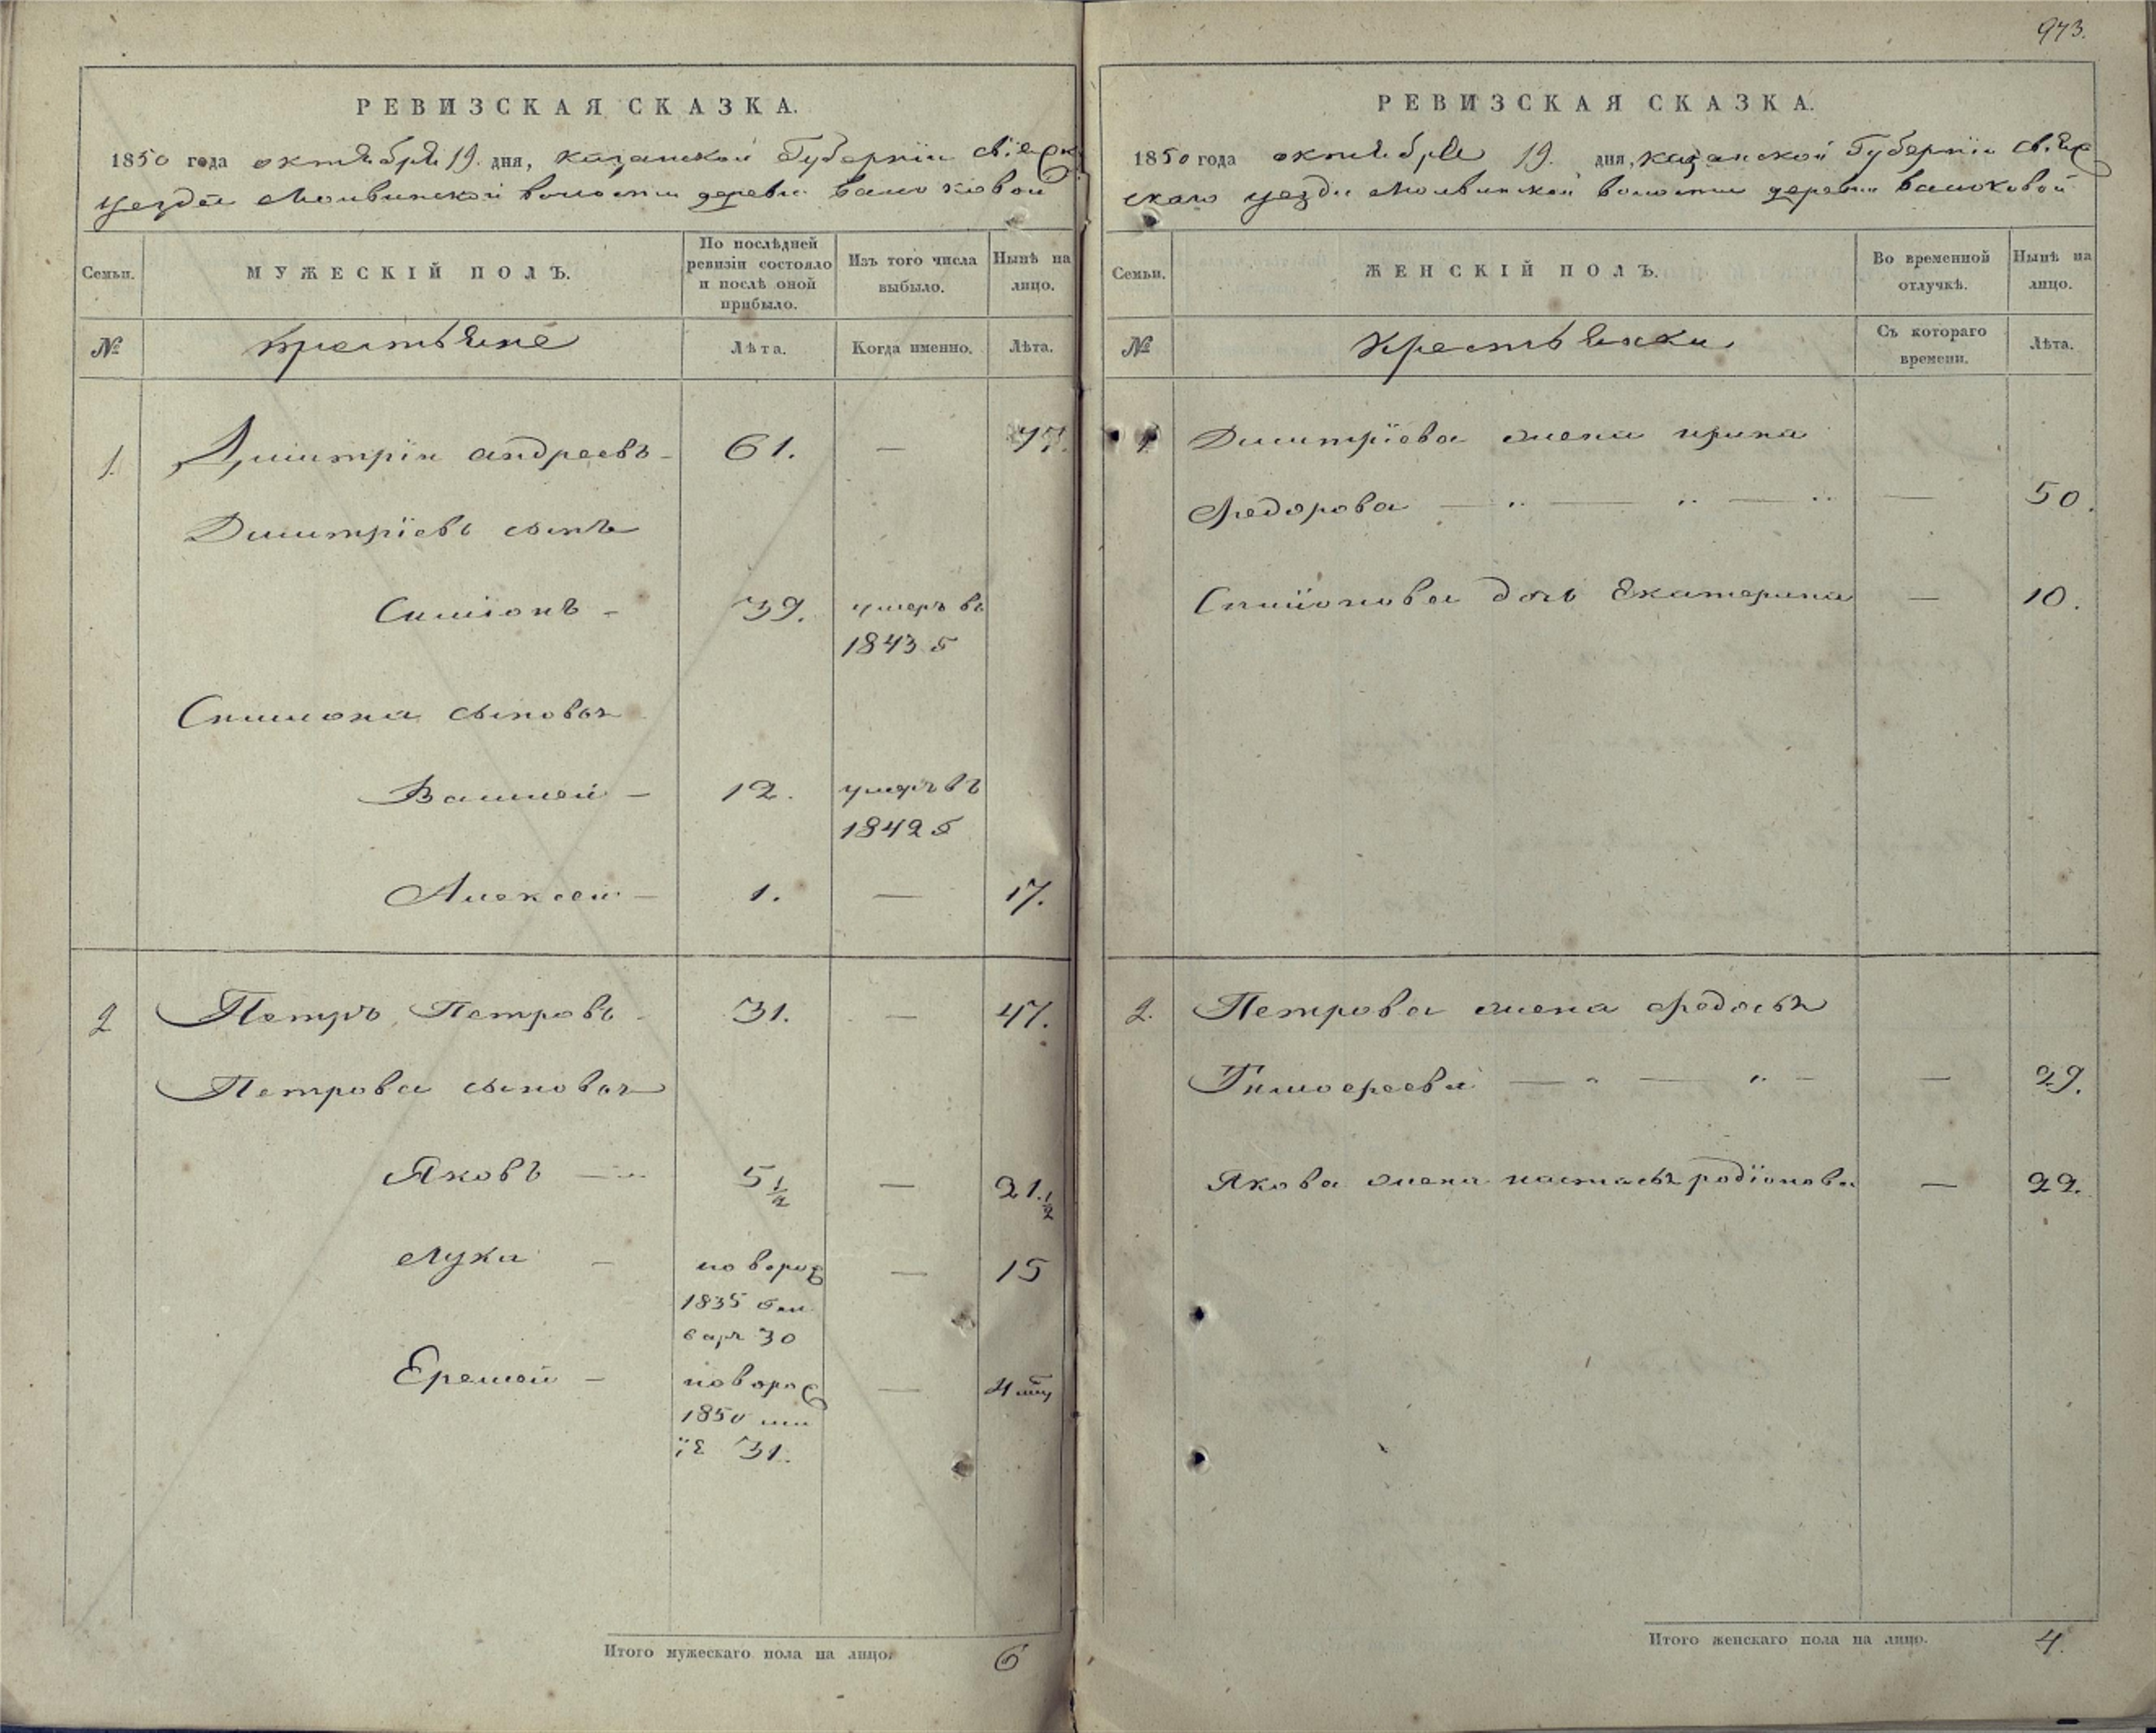 РЕВИЗСКАЯ СКАЗКА.
1850 года октября 19. дня, казанской Губернїи свіяжск
уезда Молвинской волости деревни
Семьи.
МУЖЕСКІЙ ПОЛЪ.
По послѣдней
ревизіи состояло
и послѣ оной
прибыло.
Изъ того числа
выбыло.
Нынѣ на
лицо.
№
крестьяне
Лѣта.
Когда именно.
Лѣта.
1. Димитрїи андреевъ — 61. — 77.
Димитрїевъ сынъ
Симіонъ — 39. умеръ въ
1843 г
Симиона сыновья
Василей — 12. умеръ въ
1842 г
Алексеи — 1. — 17.
2 Петръ Петровъ 31. — 47.
Петрова сыновья
Яковъ — 5 1/2 — 21. 1/2
Лука — новорож — 15
1835 ген
варя 30
Еремей — новорож — 4 мц
1850 ма
їя 31.
Итого мужескаго пола на лицо. 6
973.
РЕВИЗСКАЯ СКАЗКА.
1850 года октября 19. дня, казанской Губернїи свіяж
скаго уезда Молвинской волости деревни
Семьи.
ЖЕНСКІЙ ПОЛЪ.
Во временной
отлучкѣ.
Нынѣ на
лицо.
№
Крестьянки
Съ котораго
времени.
Лѣта.
1 Димитрїева жена ирина
Федорова — „ — „ — „ — 50.
Симїонова дочь Екатерина — 10.
2. Петрова жена Федосья
Тимофеева — „ — „ — — 29.
Якова жена настасья родїонова — 22.
Итого женскаго пола на лицо. 4.